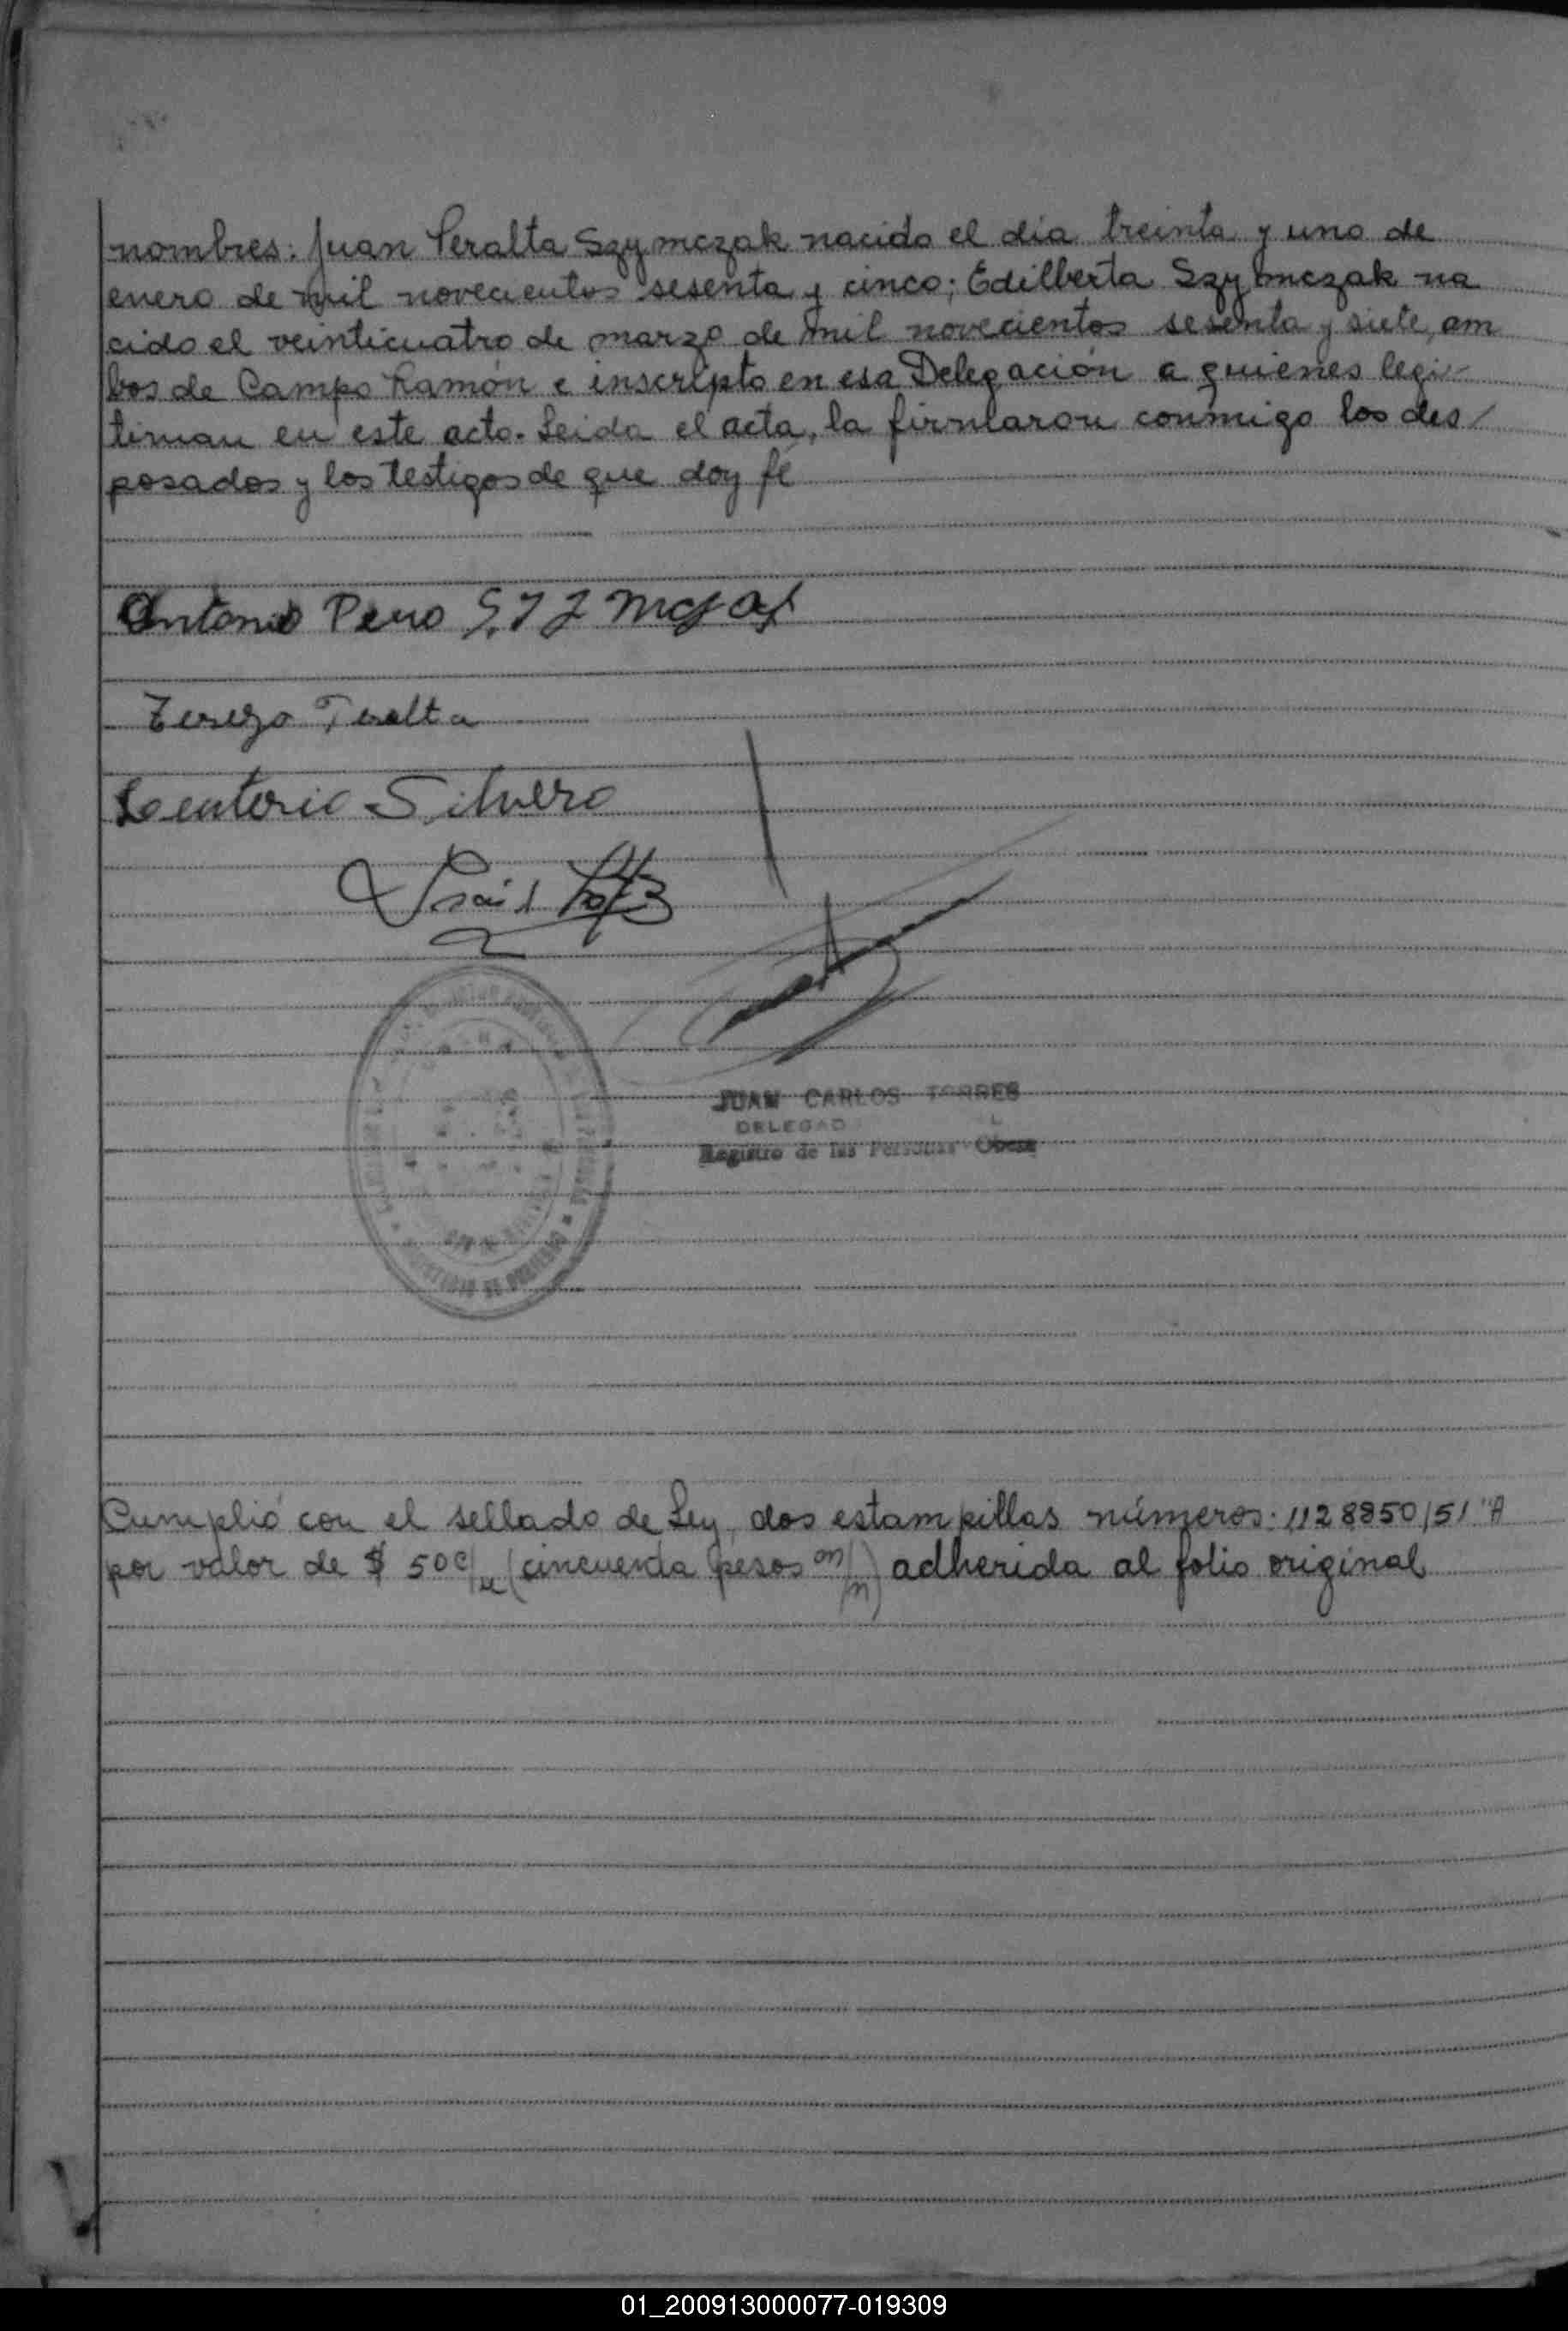 nombres: Juan Peralta Szymczak nacido el dia treinta y uno de
enero de mil novecientos sesenta y cinco; Edilberta Szymczak na
cido el veinticuatro de marzo de mil novecientos sesenta y siete, am
bos de Campo Ramón e inscripto en esa Delegación a quienes legi-
timan en este acto. Leida el acta, la firmaron conmigo los des/
posados y los testigos de que doy fé
Antonio
Tereza Peralta
Silvero
JUAN CARLOS TORRES
DELEGADO
Registro de las Personas Obera
Cumplió con el sellado de Ley, dos estampillas números: 1128850/51 "A
por valor de $ 50 c/u (cincuenta pesos m/n) adherida al folio original
01_200913000077-019309